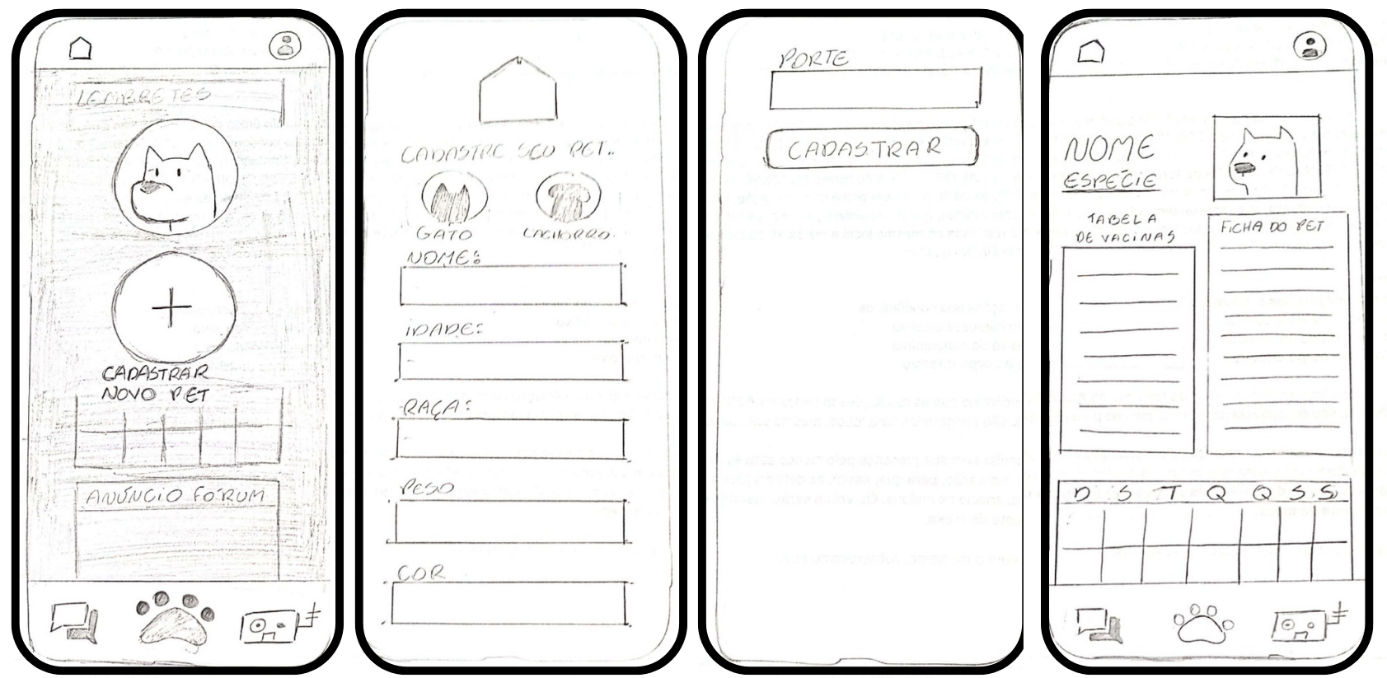 LEMBRETES
CADASTRAR
NOVO PET
ANÚNCIO FÓRUM
CADASTRE SEU PET.
GATO
CACHORRO
NOME:
IDADE:
RAÇA:
PESO
COR
PORTE
CADASTRAR
NOME
ESPÉCIE
TABELA
DE VACINAS
FICHA DO PET
D S T Q Q S S